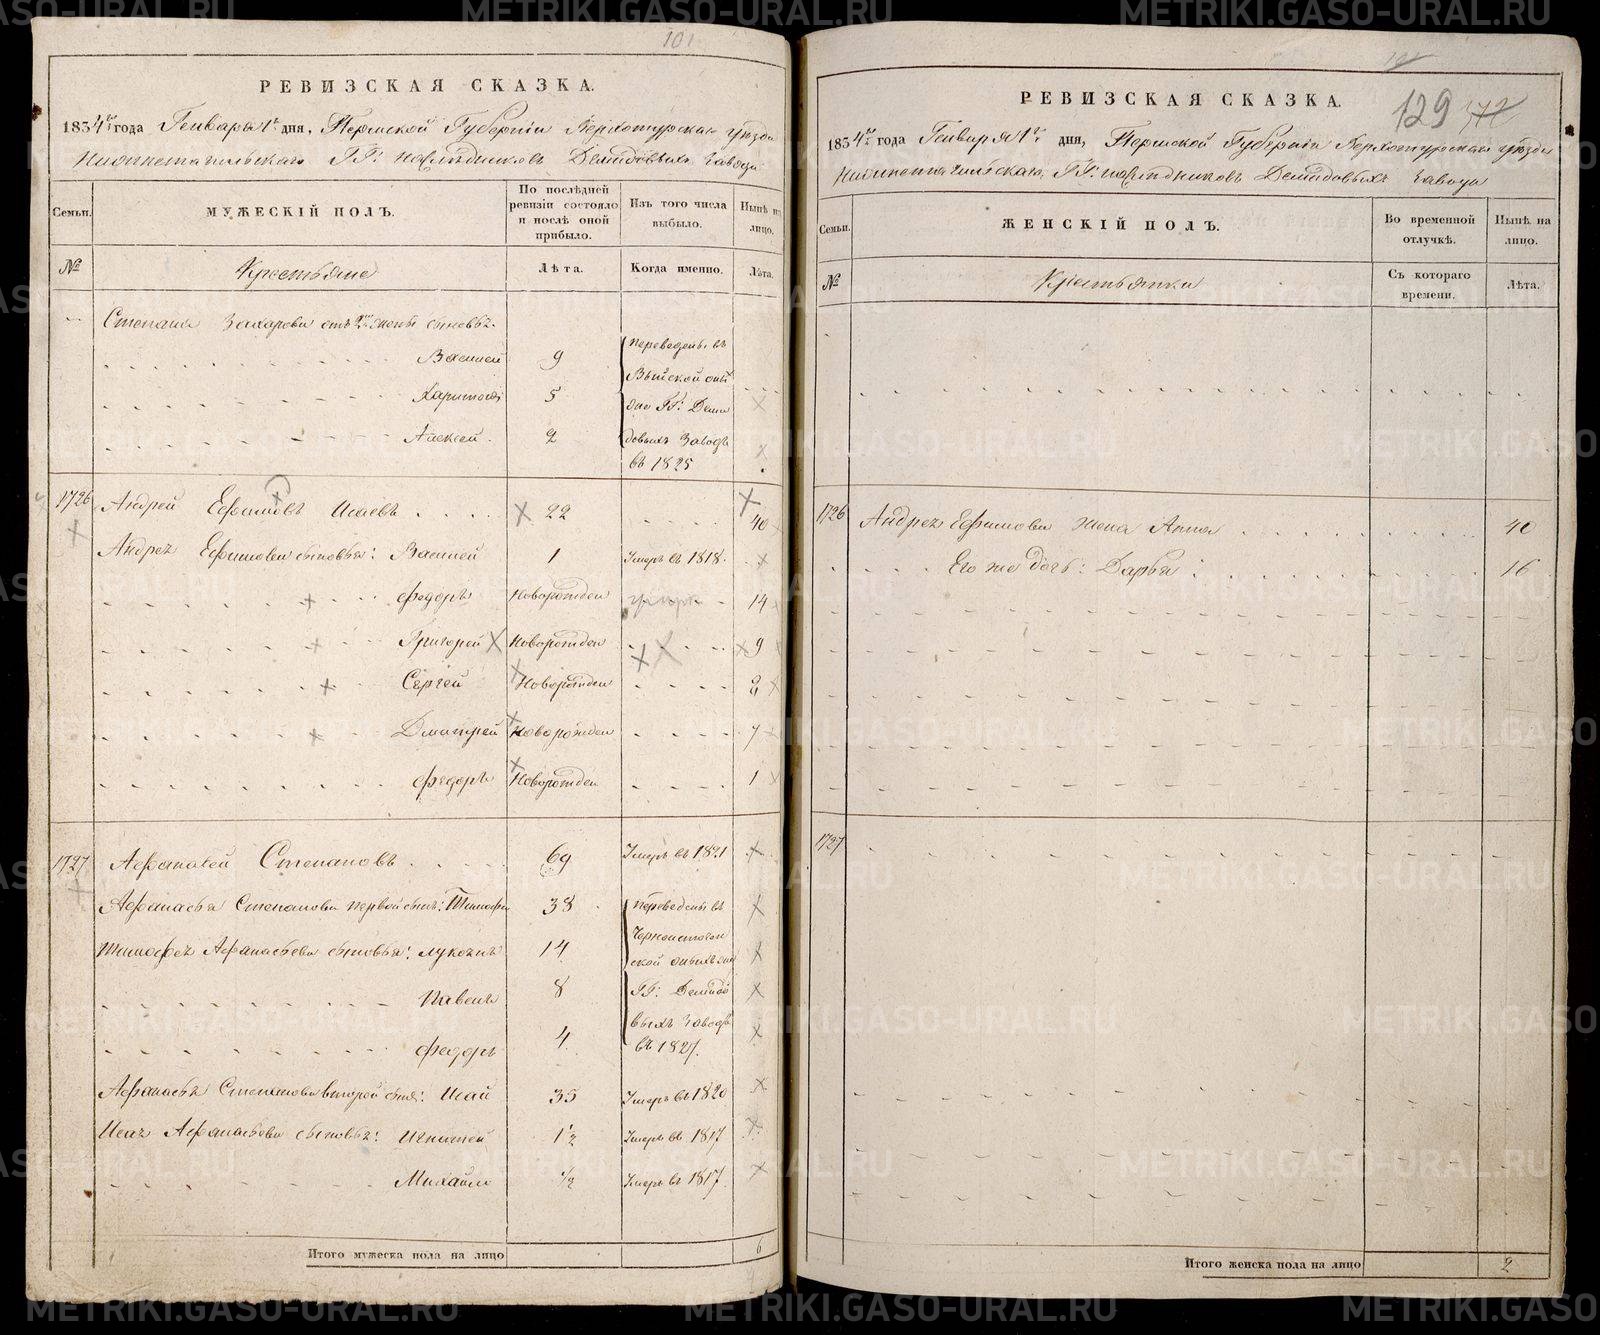 101
РЕВИЗСКАЯ СКАЗКА.
1834го года Генваря 1го дня, Пермской Губернiи Верхотурскаго уѣзда
Нижнетагильскаго ГГ: наслѣдниковъ Демидовыхъ завода
Семьи.
МУЖЕСКIЙ ПОЛЪ.
По послѣдней ревизiи состояло и послѣ оной прибыло.
Изъ того числа выбыло.
Нынѣ на лицо.
№
Крестьяне
Лѣта.
Когда именно.
Лѣта.
Степана Захарова отъ 2й жены сыновья.
Василей 9 переведены въ
Выйской
Харитонъ 5 ГГ: Деми
Алексей. 2 довыхъ заводъ
въ 1825
1726 Андрей Ефимовъ Исаевъ 22 40
Андрея Ефимова сыновья: Василей 1 Умеръ въ 1818.
Федоръ Новорожден 14
Григорей Новорожден 9
Сергей Новорожден
Дмитрей Новорожден 7
Федоръ Новорожден 1
1727 Афанасей Степановъ 69 Умеръ въ 1821
Афанасья Степанова первой сынъ: Тимофей 38 переведены въ
Тимофея Афанасьева сыновья: Лукоянъ 14 Черноисточин
ской
Павелъ 8 ГГ: Демидо
Федоръ 4 выхъ заводъ
въ 1827.
Афанасья Степанова второй сынъ: Исай 35 Умеръ въ 1820
Исая Афанасьева сыновья: Игнатей 1½ Умеръ въ 1817
Михайло ½ Умеръ въ 1817.
Итого мужеска пола на лицо 6
129
РЕВИЗСКАЯ СКАЗКА.
1834го года Генваря 1го дня, Пермской Губернiи Верхотурскаго уѣзда
Нижнетагильскаго ГГ: наслѣдниковъ Демидовыхъ завода
Семьи.
ЖЕНСКIЙ ПОЛЪ.
Во временной отлучкѣ.
Нынѣ на лицо.
№
Крестьянки
Съ котораго времени.
Лѣта.
1726 Андрея Ефимова жена Анна 40
Его же дочь: Дарья 16
1727
Итого женска пола на лицо 2
METRIKI.GASO-URAL.RU